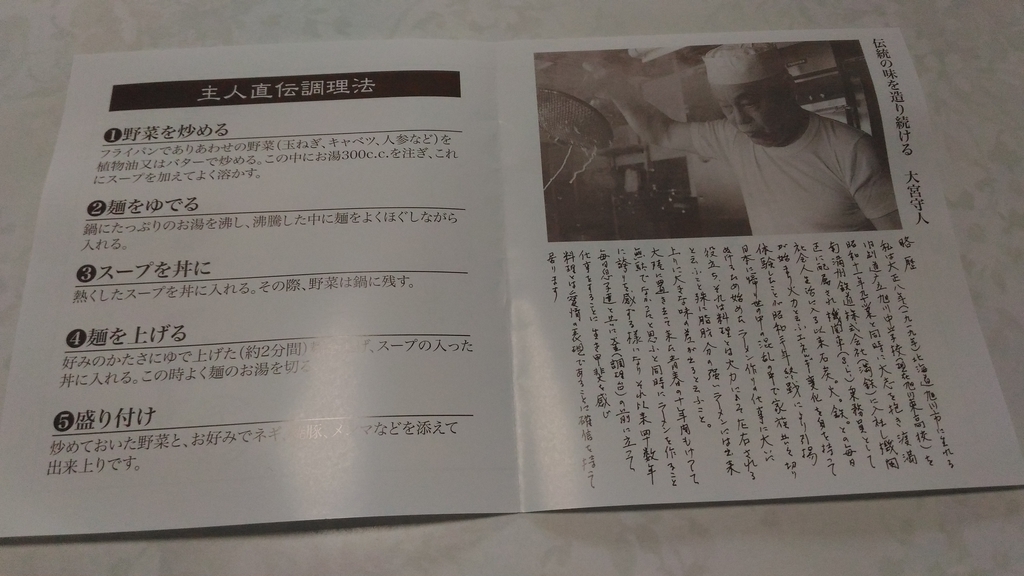 主人直伝調理法
❶野菜を炒める
フライパンでありあわせの野菜(玉ねぎ、キャベツ、人参など)を
植物油又はバターで炒める。この中にお湯300c.c.を注ぎ、これ
にスープを加えてよく溶かす。
❷麺をゆでる
鍋にたっぷりのお湯を沸し、沸騰した中に麺をよくほぐしながら
入れる。
❸スープを丼に
熱くしたスープを丼に入れる。その際、野菜は鍋に残す。
❹麺を上げる
好みのかたさにゆで上げた(約2分間) 、スープの入った
丼に入れる。この時よく麺のお湯を切る
❺盛り付け
炒めておいた野菜と、お好みでネギ、 豚、メンマなどを添えて
出来上りです。
伝統の味を造り続ける 大宮守人
略歴
私は大正八年(一九一九年)北海道旭川市に生まれる
旧制道庁立旭川中学校(現在旭川東高校)を
昭和十二年卒業と同時に大志を抱き渡満
旧満州鉄道株式会社(満鉄)に入社し機関
区に配属され機関車(きしゃ)乗務員として
社会人生活に入る以来石炭、火、鉄との毎日
が始まり火力とそのエネルギー変化を身を持って
体験したことが昭和二十年終戦により引揚
日本に帰り世の中の混乱の中で家族共々を切り
始めたラーメン作りの仕事に大いに
役立ちそれは料理とは火力によって左右される
と云ふこと殊に脂肪分の強いラーメンには出来
上りに大きな味の差が出ると云ふこと。
大陸に置きて来た青春の十年間もけっして
無駄ではなかったと思ふと同時にラーメンを作ること
に誇りを感ずる様になりそれ以来四十数年
毎日息子達と共に釜(調理台)の前に立って
仕事をすることに生き甲斐を感じ
料理は愛情の表現であることに確信を持って
居ります